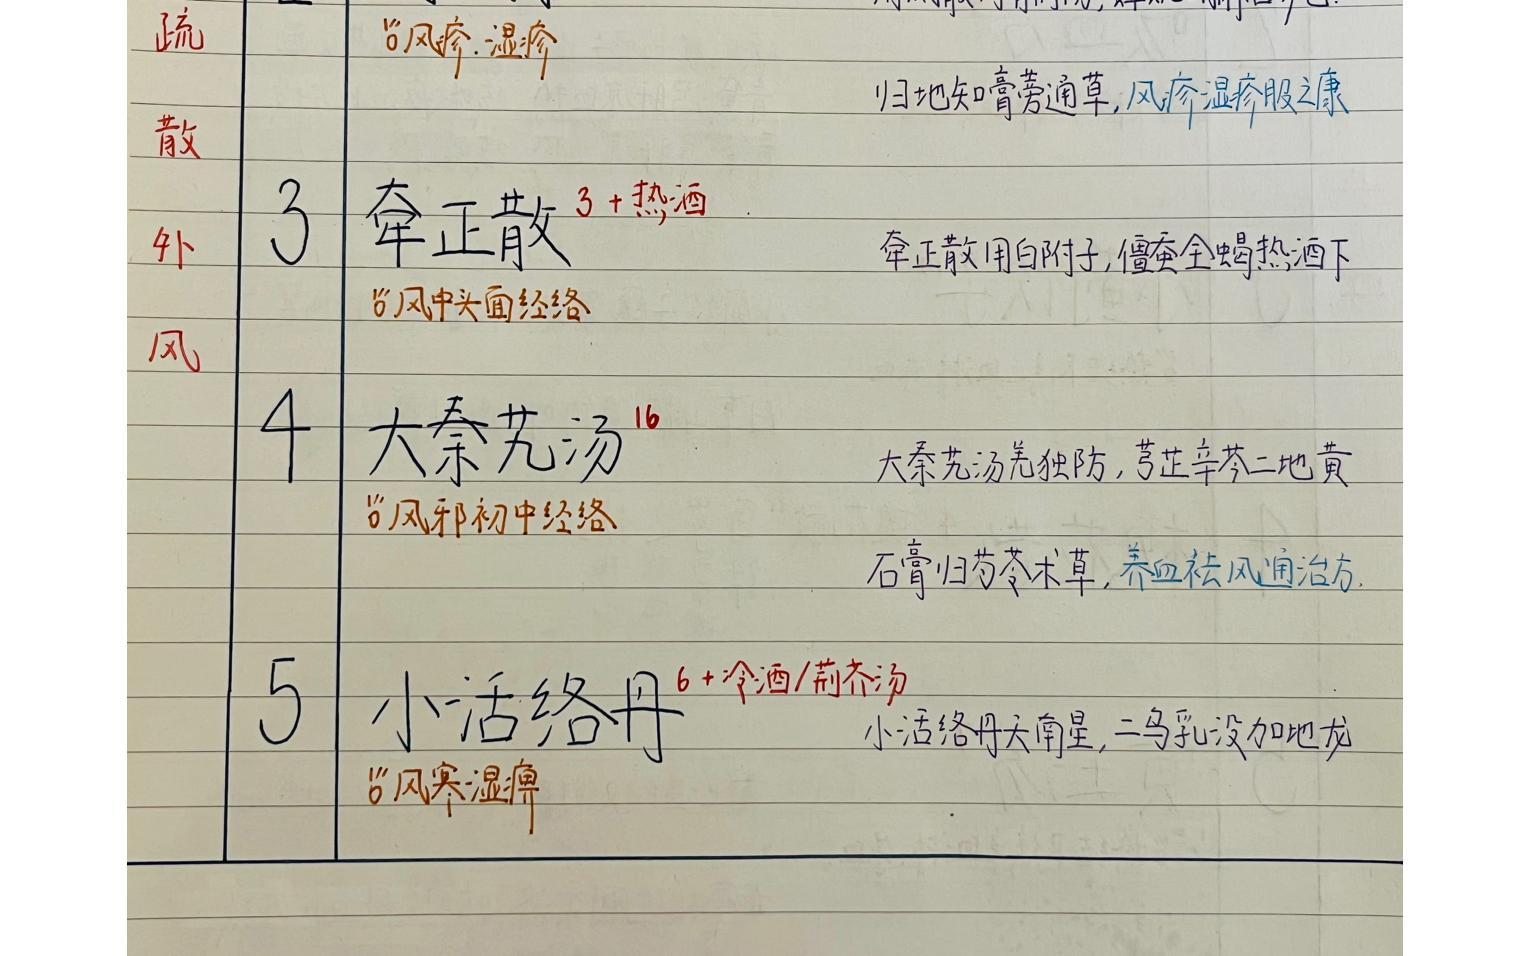 疏
散
外
风
风疹.湿疹
归地知膏蒡通草,风疹湿疹服之康
3 牵正散 3+热酒
牵正散用白附子,僵蚕全蝎热酒下
风中头面经络
4 大秦艽汤 16
大秦艽汤羌独防,芎芷辛芩二地黄
风邪初中经络
石膏归芍苓术草,养血祛风通治方.
5 小活络丹 6+冷酒/荆芥汤
小活络丹天南星,二乌乳没加地龙
风寒湿痹